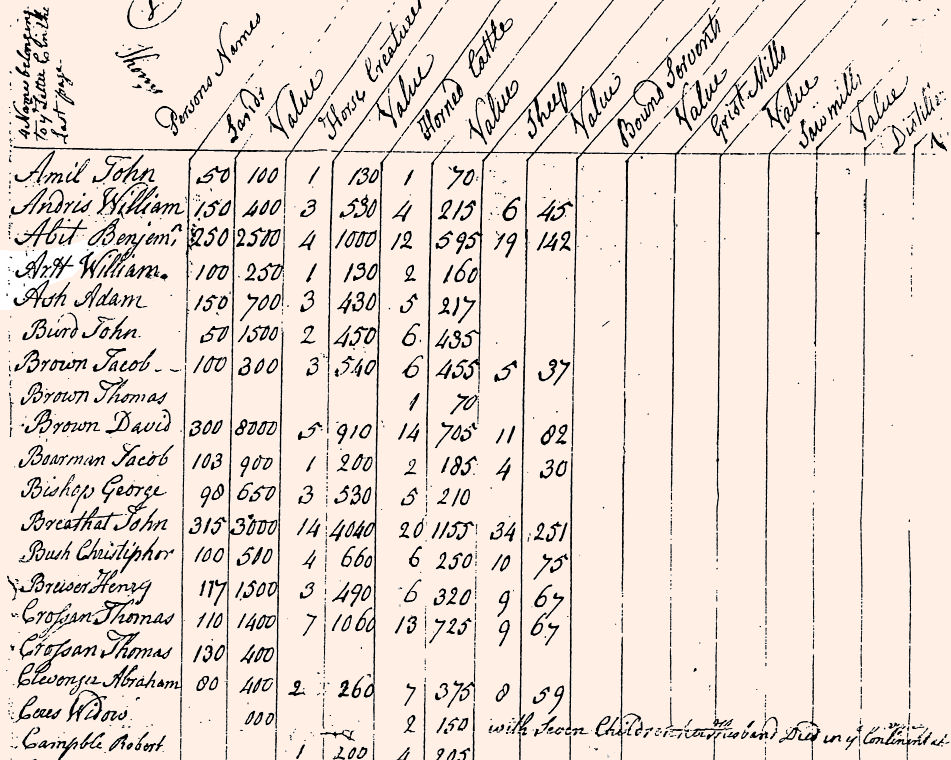 4 Names belonging
to y Letter C in the
last page
Thomas
Persons Names Lands Value Horse Creatures Value Horned Cattle Value Sheep Value Bound Servents Value Grist Mills Value Sawmills Value
Amil John 50 100 1 130 1 70
Andris William 150 400 3 530 4 215 6 45
Abit Benjemⁿ 250 2500 4 1000 12 595 19 142
Artt William 100 250 1 130 2 160
Ash Adam 150 700 3 430 5 217
Burd John 50 1500 2 450 6 435
Brown Jacob 100 300 3 540 6 455 5 37
Brown Thomas 1 70
Brown David 300 8000 5 910 14 705 11 82
Boarman Jacob 103 900 1 200 2 185 4 30
Bishop George 98 650 3 530 5 210
Breathat John 315 3000 14 4040 20 1155 34 251
Bush Christiphor 100 500 4 660 6 250 10 75
Breiser Henry 117 1500 3 490 6 320 9 67
Croſsan Thomas 110 1400 7 1060 13 725 9 67
Croſsan Thomas 130 400
Clevenger Abraham 80 400 2 260 7 375 8 59
Cees Widow 2 150 with Seven Children husband Died in y Continental
Campble Robert 1 200 4 205